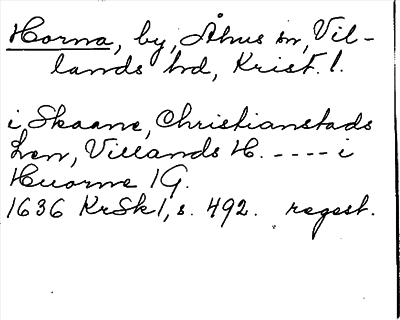 Horna, by, Åhus sn, Vil-
lands hd, Krist. l.
i Skaane, Christianstads
Len, Villands H. ---- i
Huorne 1 G.
1636 KrSk 1, s. 492. regest.